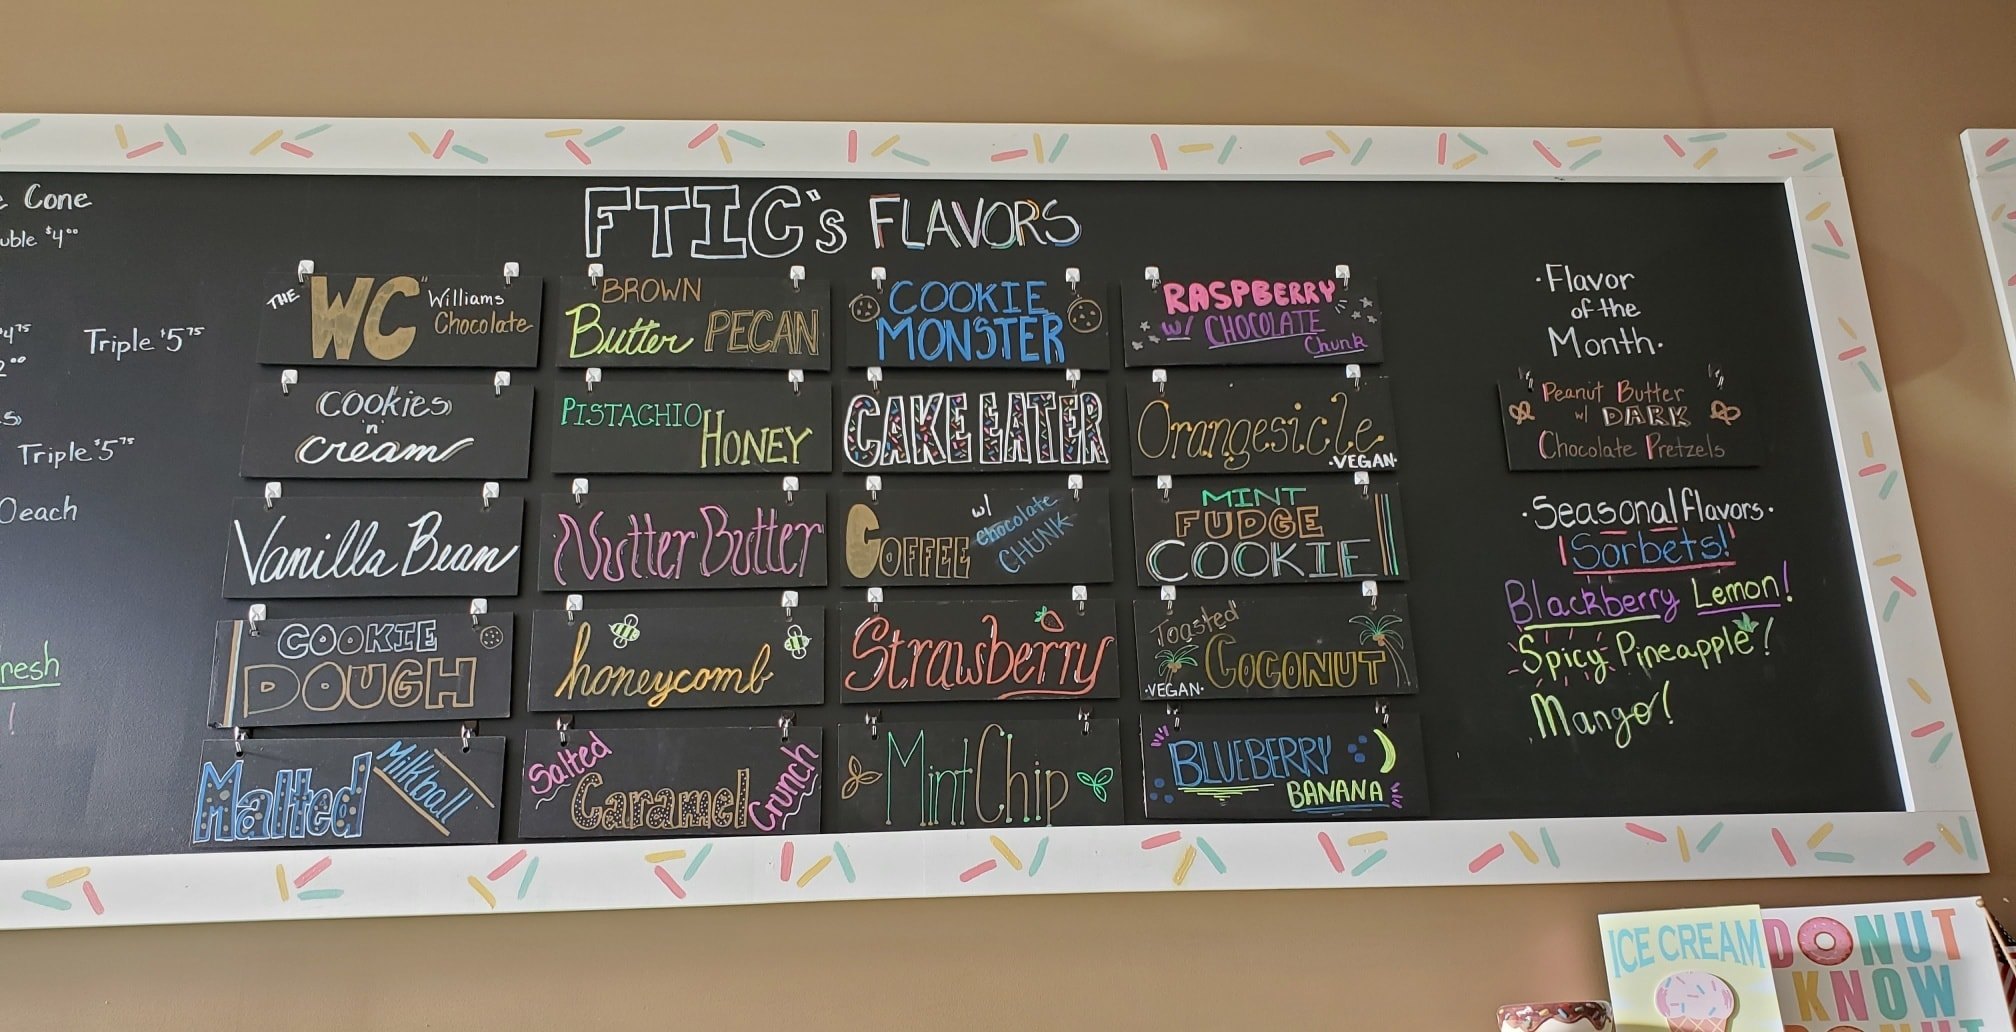 Cone
uble $4⁰⁰
Triple $5⁷⁵
Triple $5⁷⁵
each
resh
!
FTIC's FLAVORS
THE WC "Williams
Chocolate
BROWN
Butter PECAN
COOKIE
MONSTER
RASPBERRY
w/ CHOCOLATE
Chunk
Cookies
'n'
Cream
PISTACHIO
HONEY
CAKE EATER
Orangesicle
·VEGAN·
Vanilla Bean
Nutter Butter
COFFEE w/
Chocolate
CHUNK
MINT
FUDGE
COOKIE
COOKIE
DOUGH
honeycomb
Strawberry
Toasted
COCONUT
·VEGAN·
Malted
Milkball
Salted
Caramel
Crunch
Mint Chip
BLUEBERRY
BANANA
·Flavor
of the
Month·
Peanut Butter
w/ DARK
Chocolate Pretzels
·Seasonal flavors·
!Sorbets!
Blackberry Lemon!
Spicy Pineapple!
Mango!
ICE CREAM
DONUT
KNOW